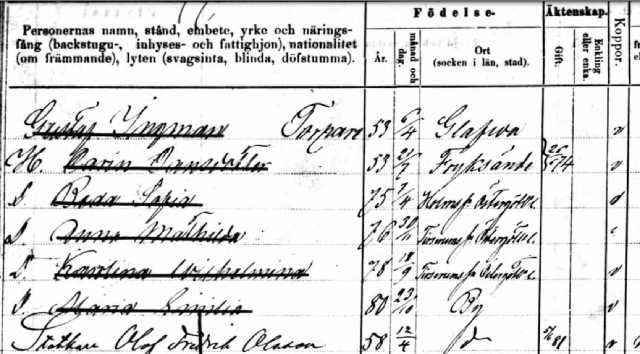 Personernas namn, stånd, embete, yrke och närings-
fång (backstugu-, inhyses- och fattighjon), nationalitet
(om främmande), lyten (svagsinta, blinda, döfstumma).
Födelse-
År.
månad och dag.
Ort
(socken i län, stad).
Äktenskap.
Gift.
Enkling eller enka.
Koppor.
Gustaf Ingman Torpare 53 6/4 Glafva v
H. Karin Jansdotter 53 Fryksände v
D Beda Sofia 75 7/4
D Anna Mathilda 76 30/11
D. Karolina Wilhelmina 78 18/9 v
D. Maria Emilia 80 23/10 By v
Olof Fredrik Olsson 58 12/4 v